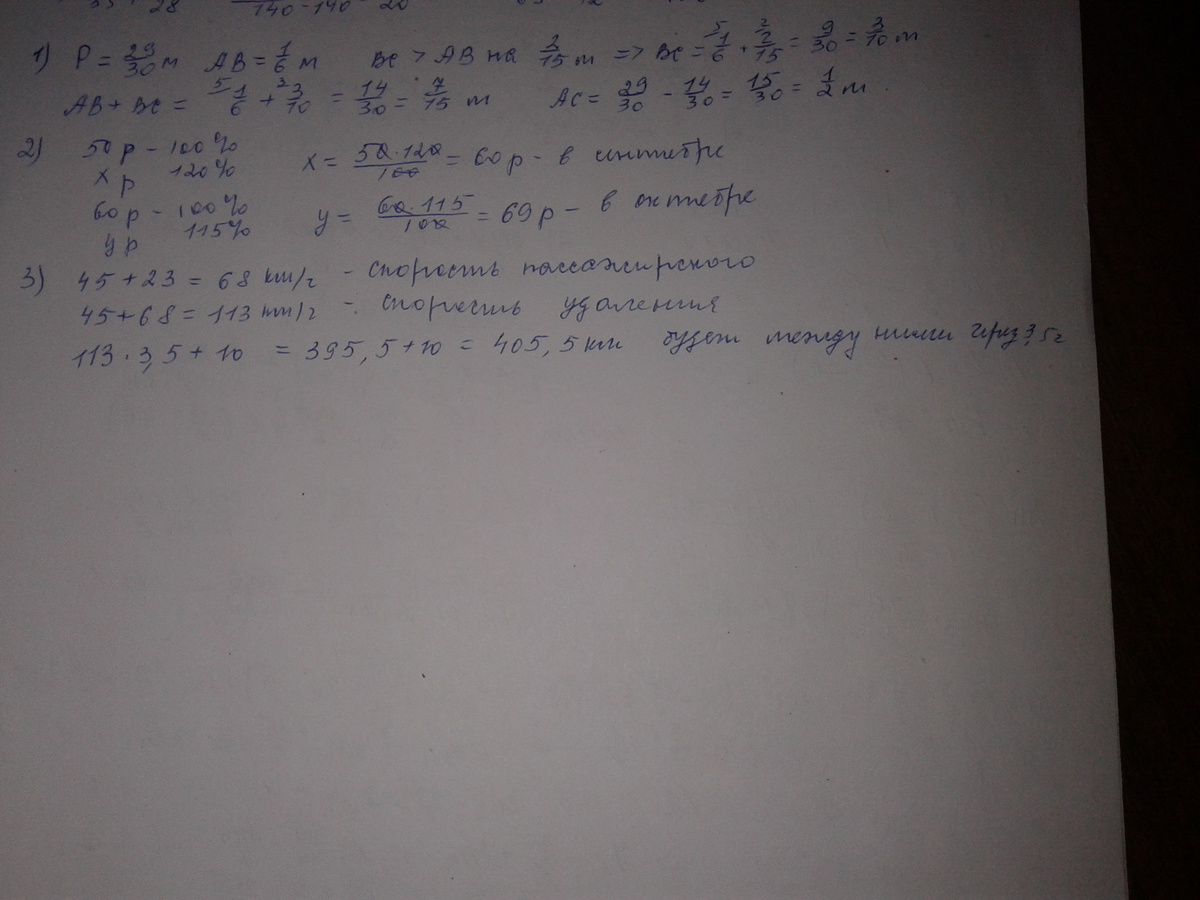 140 - 140 20
1) P = 29/30 м AB = 1/6 м BC > AB на 2/15 м => BC = 5 1/6 + 2 2/15 = 9/30 = 3/10 м
AB + BC = 5 1/6 + 3 3/10 = 14/30 = 7/15 м AC = 29/30 - 14/30 = 15/30 = 1/2 м.
2) 50 р - 100%
x р 120% x = 50·120/100 = 60 р - в сентябре
60 р - 100%
y р 115% y = 60·115/100 = 69 р - в октябре
3) 45 + 23 = 68 км/ч - скорость пассажирского
45 + 68 = 113 км/ч - скорость удаления
113 · 3,5 + 10 = 395,5 + 10 = 405,5 км будет между ними через 3,5 ч